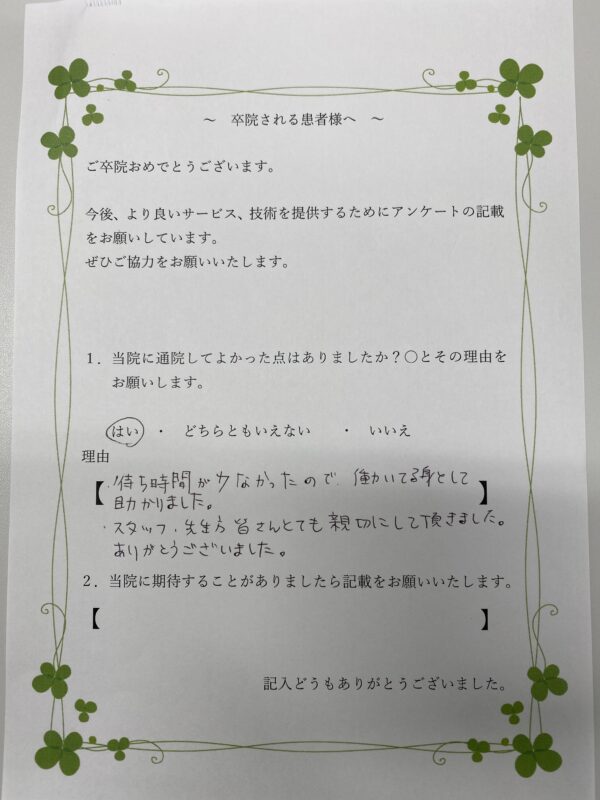 ～ 卒院される患者様へ ～
ご卒院おめでとうございます。
今後、より良いサービス、技術を提供するためにアンケートの記載
をお願いしています。
ぜひご協力をお願いいたします。
１．当院に通院してよかった点はありましたか？○とその理由を
お願いします。
はい ・ どちらともいえない ・ いいえ
理由
【・待ち時間が少なかったので、働いてる身として】
助かりました。
・スタッフ、先生方 皆さんとても親切にして頂きました。
ありがとうございました。
２．当院に期待することがありましたら記載をお願いいたします。
【 】
記入どうもありがとうございました。